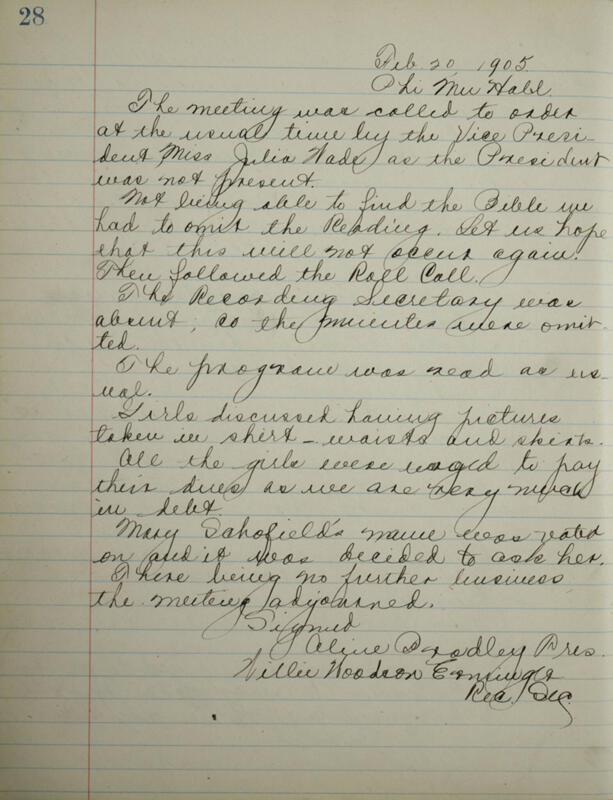 28
Feb. 20 1905.
Phi Mu Hall.
The meeting was called to order
at the usual time by the Vice Presi-
dent Miss Julia Wade as the President
was not present.
Not being able to find the Bible we
had to omit the Reading. Let us hope
that this will not occur again.
Then followed the Roll Call.
The Recording Secretary was
absent; so the minutes were omit-
ted.
The program was read as us-
ual.
Girls discussed having pictures
taken in shirt-waists and skirts.
All the girls were urged to pay
their dues as we are very much
in debt.
Mary Schofield's name was voted
on and it was decided to ask her.
There being no further business
the meeting adjourned.
Signed
Aline Bradley Pres.
Willie Woodson
Rec. Sec.